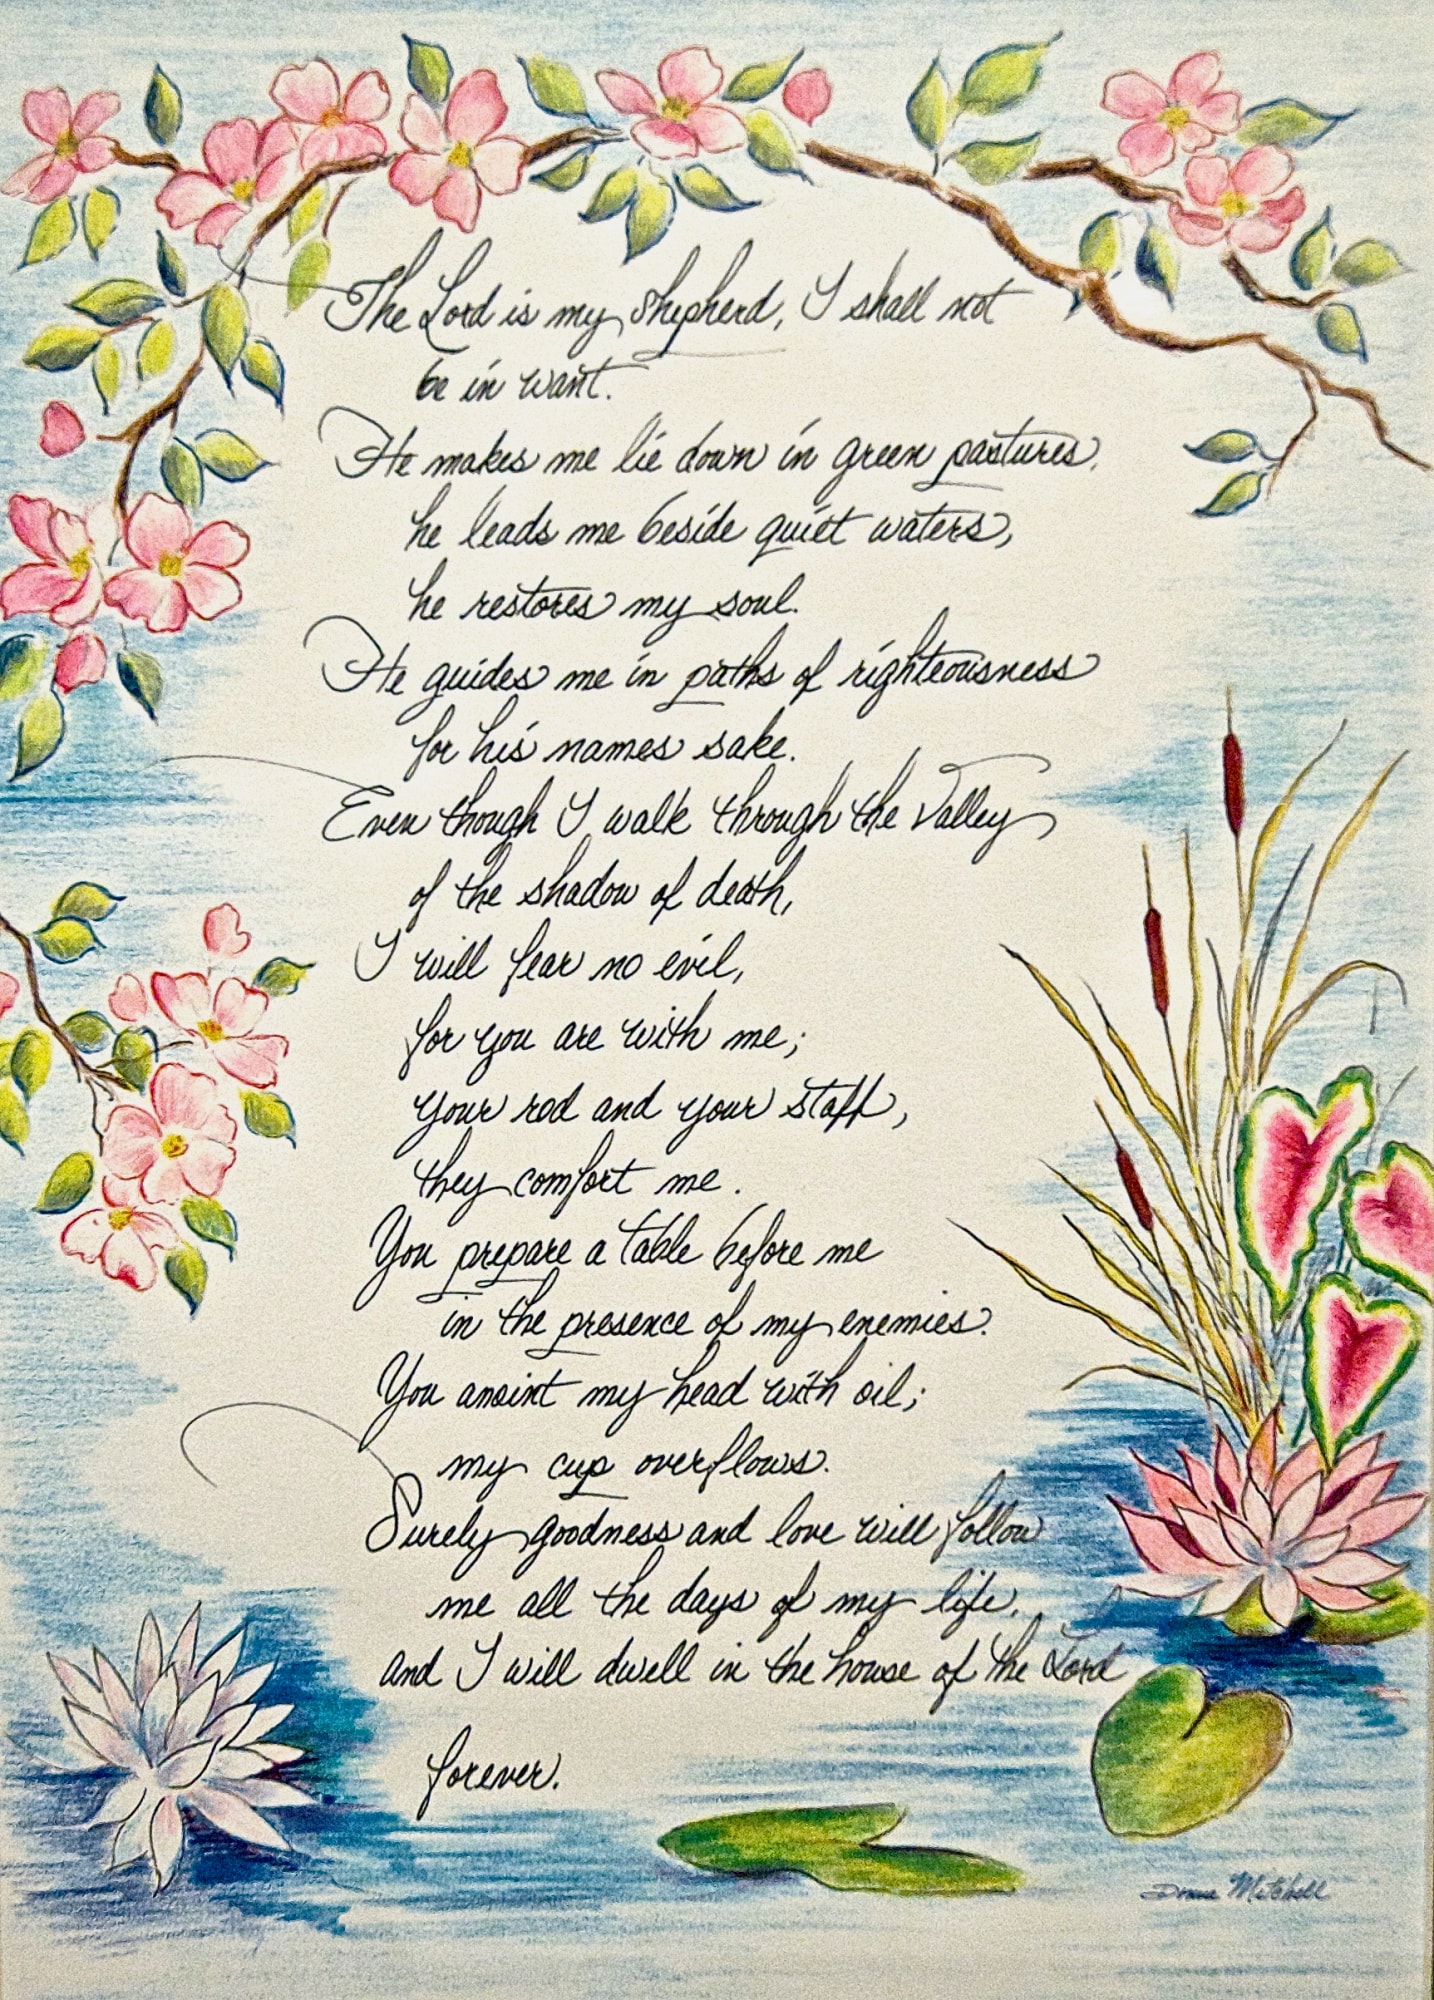 The Lord is my Shepherd, I shall not
be in want.
He makes me lie down in green pastures,
he leads me beside quiet waters,
he restores my soul.
He guides me in paths of righteousness
for his names sake.
Even though I walk through the Valley
of the shadow of death,
I will fear no evil,
for you are with me;
your rod and your staff,
they comfort me.
You prepare a table before me
in the presence of my enemies.
You anoint my head with oil;
my cup overflows.
Surely goodness and love will follow
me all the days of my life,
and I will dwell in the house of the Lord
forever.
Mitchell